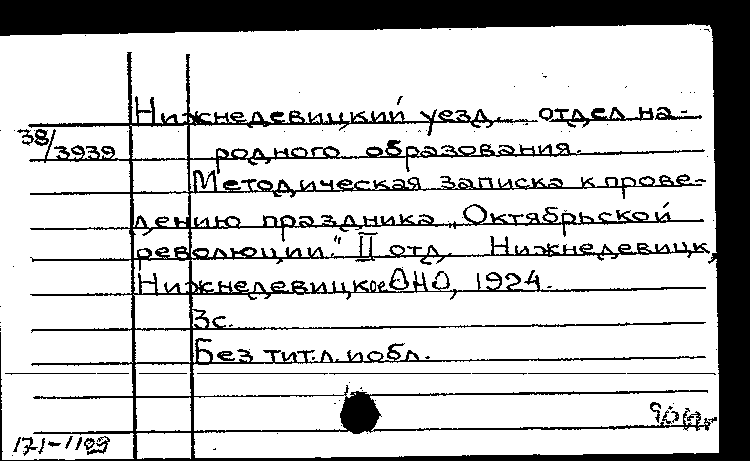 Нижнедевицкий уезд. отдел на-
38/3939 родного образования.
Методическая записка к прове-
дению праздника „Октябрьской
революции." II отд. Нижнедевицк,
Нижнедевицкое ОНО, 1924.
3с.
Без тит.л. и обл.
171-1109